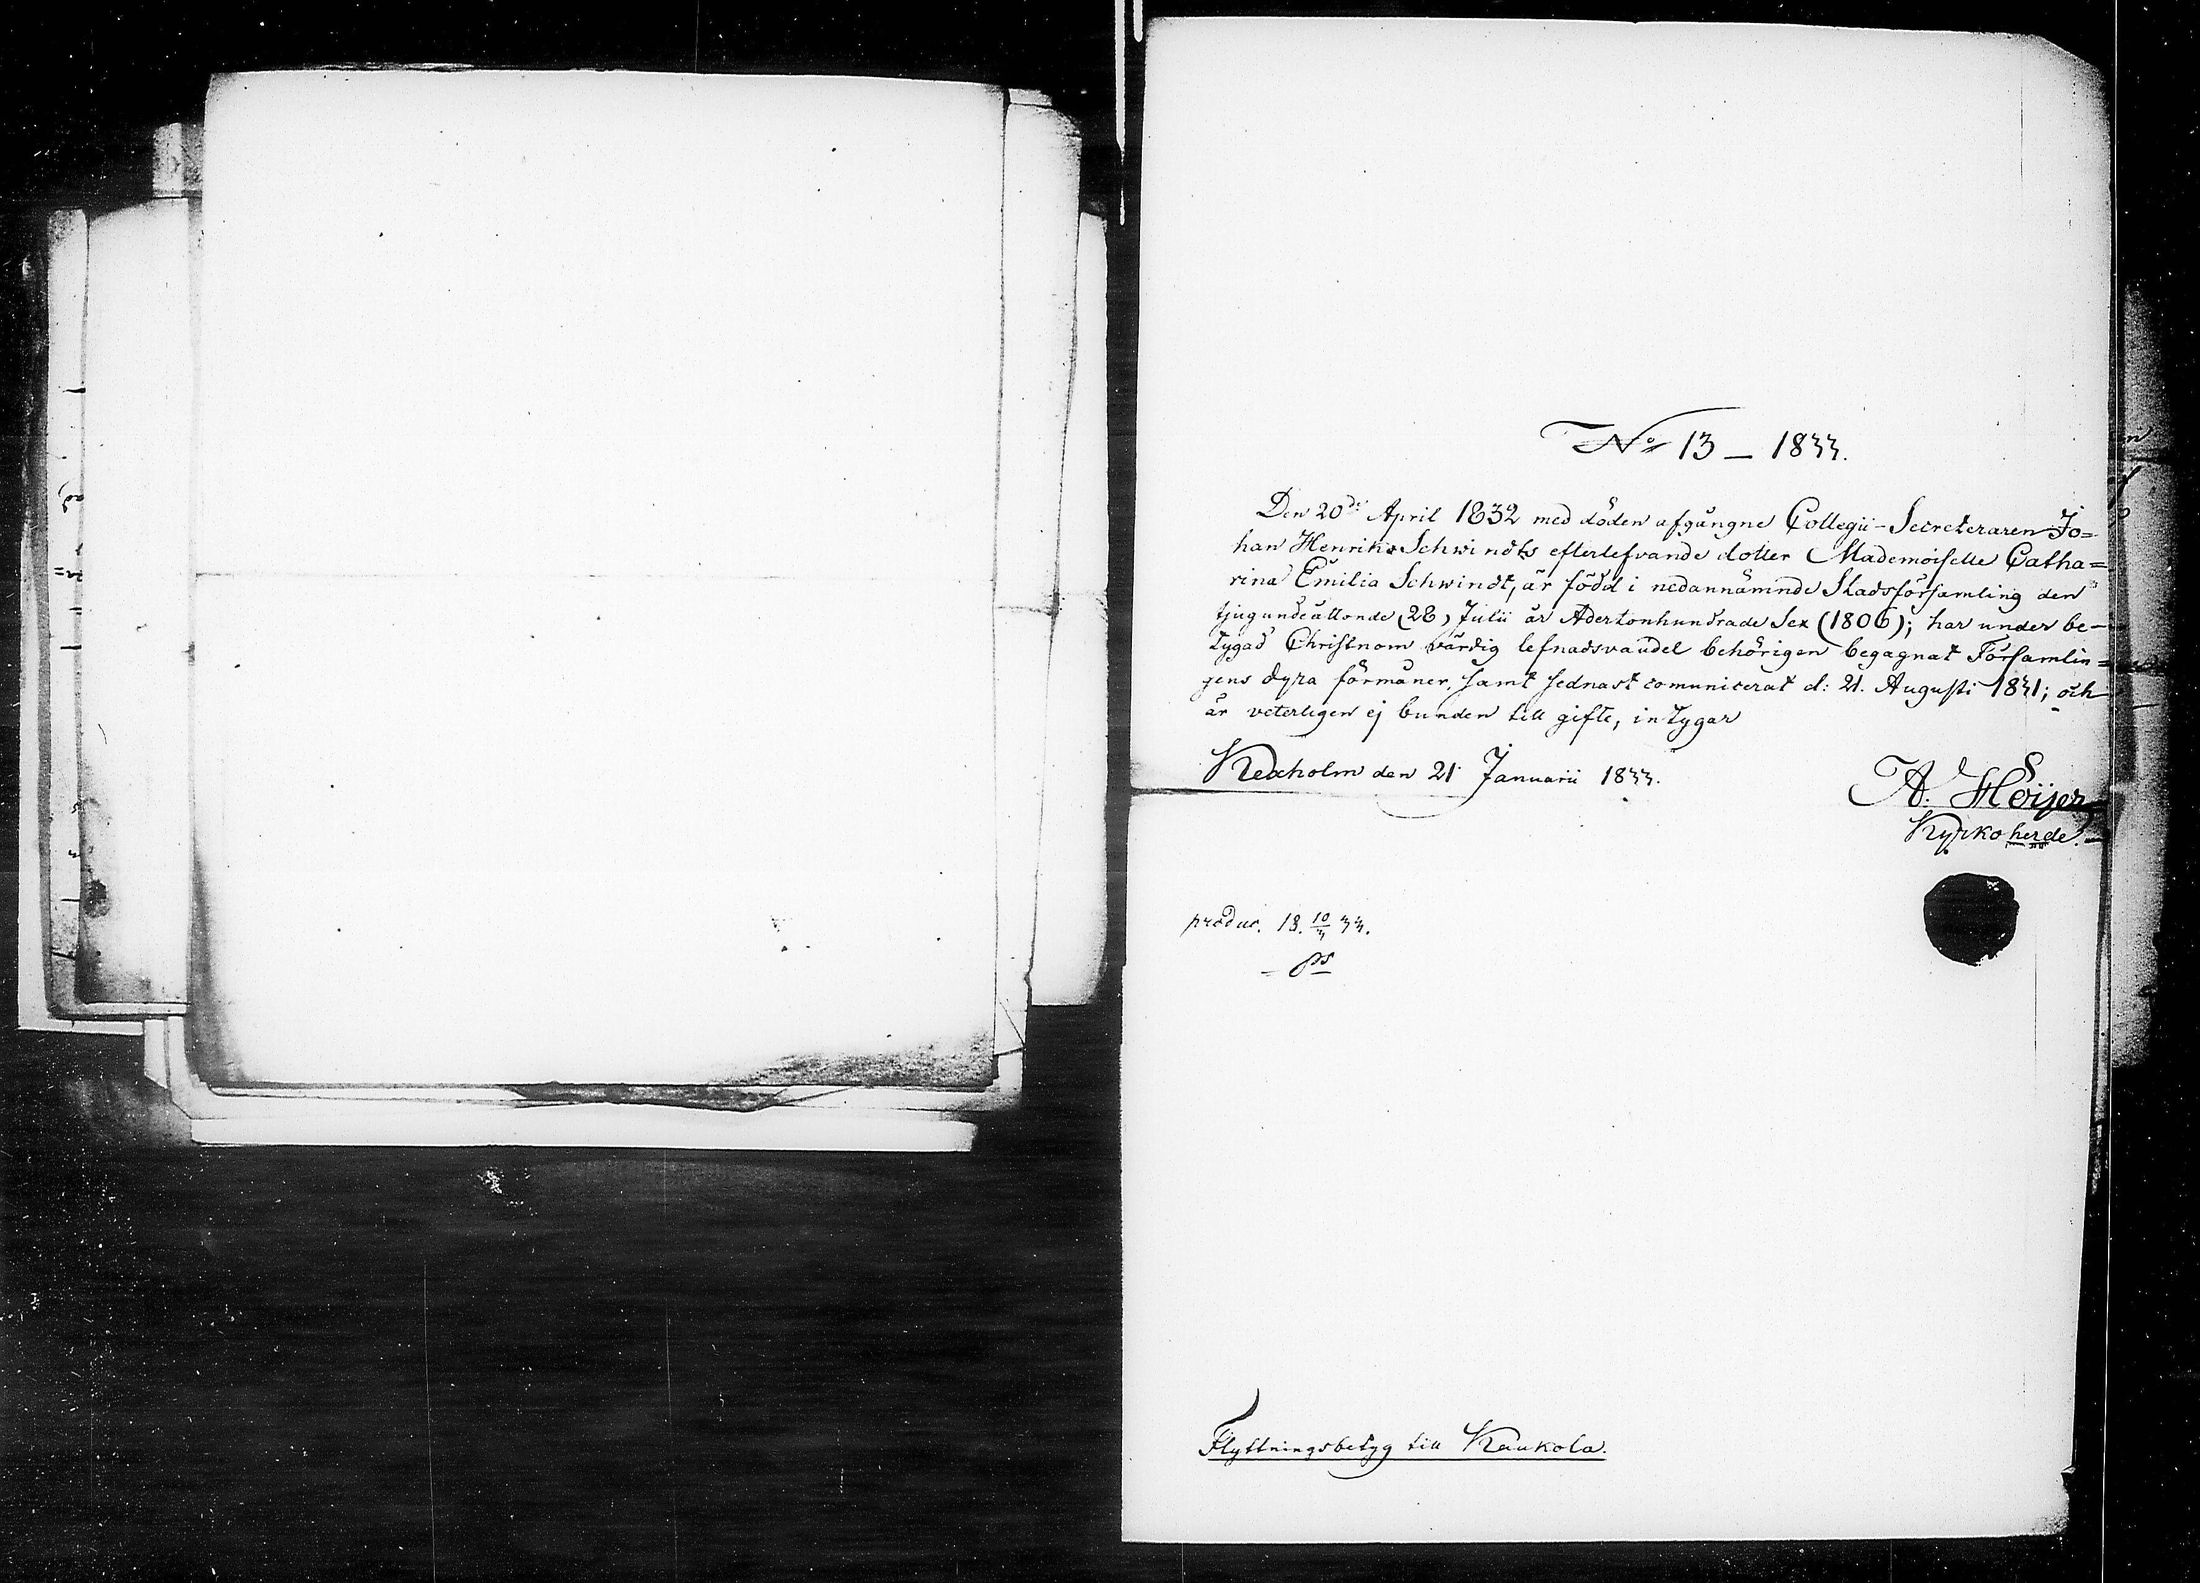 No 13 – 1833.
Den 20de April 1832 med döden afgångne Collegii-Secreteraren Jo=
han Henrik Schwindts efterlefvande dotter Mademoiselle Catha=
rina Emilia Schwindt, är född i nedannämnde Stadsförsamling den
tjugundeåttonde (28) Julii år Adertonhundrade Sex (1806); har under be-
tygad Christnom värdig lefnadsvandel behörigen begagnat Församlin=
gens dyra förmåner, samt sednast comunicerat d: 21. Augusti 1831; och
är veterligen ej bunden till gifte, intygar
Kexholm den 21 Januarii 1833.
A. Höijer
Kyrkoherde.
produc. 18. 10/3 33.
Flyttningsbetyg till Kaukola.